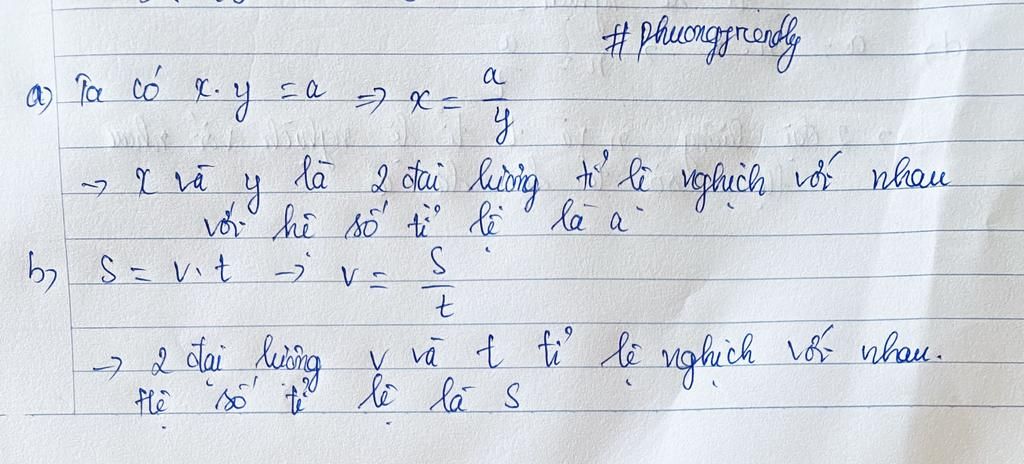 # phuongfriendly
a) Ta có x. y = a => x = a/y
-> x và y là 2 đại lượng tỉ lệ nghịch với nhau
với hệ số tỉ lệ là a
b) S = v. t -> v = S/t
-> 2 đại lượng v và t tỉ lệ nghịch với nhau.
Hệ số tỉ lệ là S